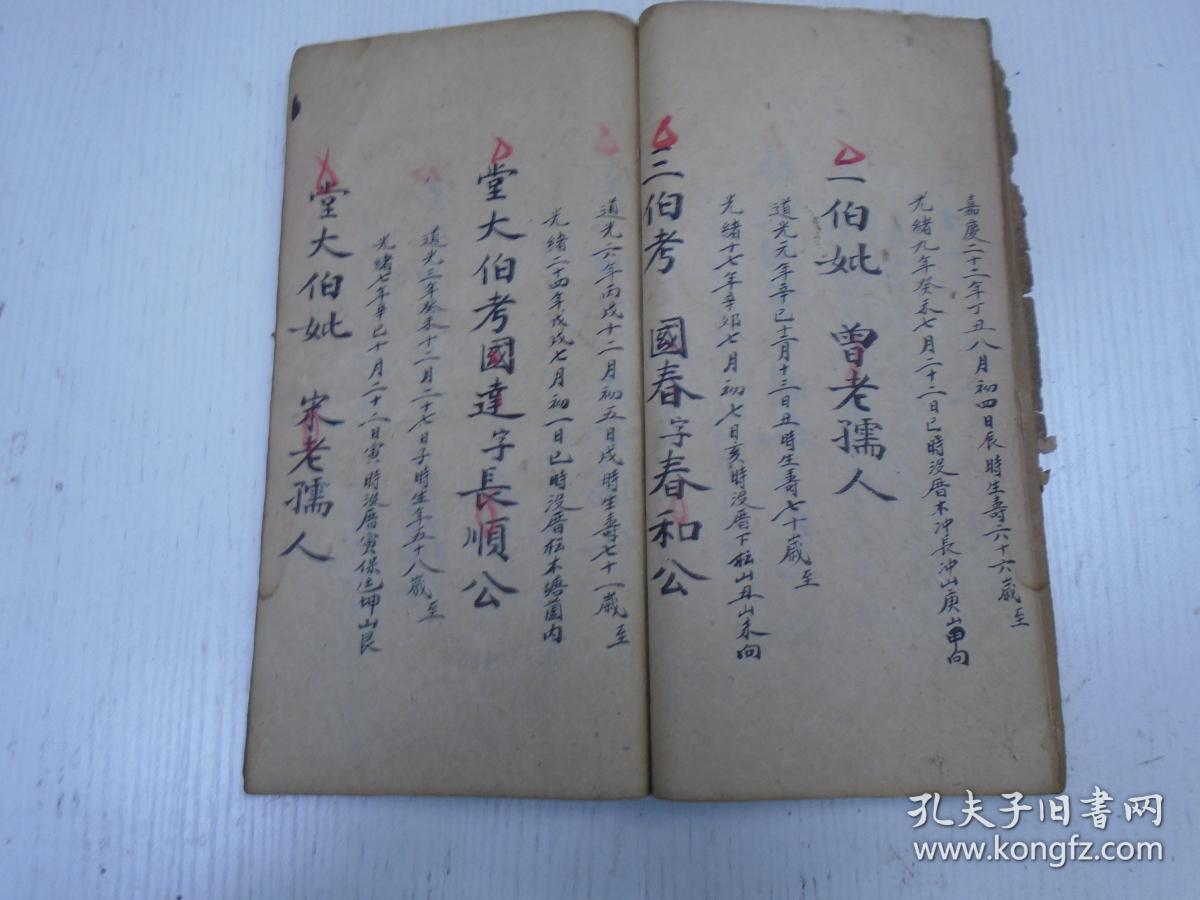 嘉慶二十二年丁丑八月初四日辰時生壽六十六歲至
光緒九年癸未七月二十二日巳時没厝木冲長冲山庚山向
一伯妣 曾老孺人
道光元年辛巳十二月十三日丑時生壽七十歲至
光緒十七年辛卯七月初七日亥時没厝下松山丑山未向
三伯考 國春字春和公
道光六年丙戌十二月初五日戌時生壽七十一歲至
光緒二十四年戊戌七月初一日巳時没厝松木塘萵内
堂大伯考國達字長順公
道光三年癸未十二月二十七日子時生年五十八歲至
光緒七年辛巳十月二十二日寅時没厝寅保屯坤山艮
堂大伯妣 宋老孺人
孔夫子旧书网
www.kongfz.com